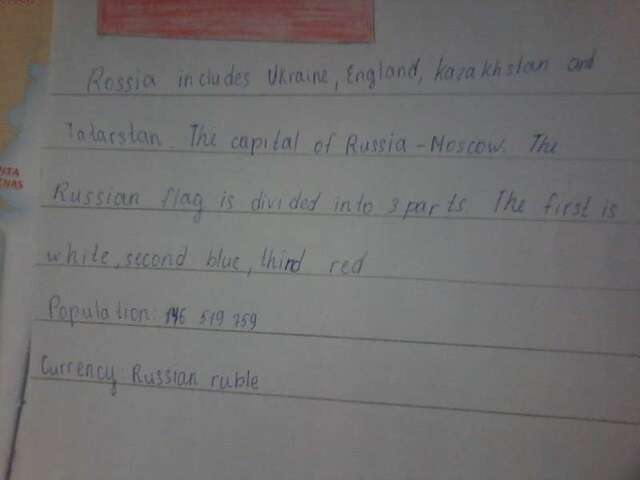 Rossia includes Ukraine, England, Kazakhstan and
Tatarstan. The capital of Russia - Moscow. The
Russian flag is divided into 3 parts. The first is
white, second blue, third red
Population: 146 519 759
Currency Russian ruble